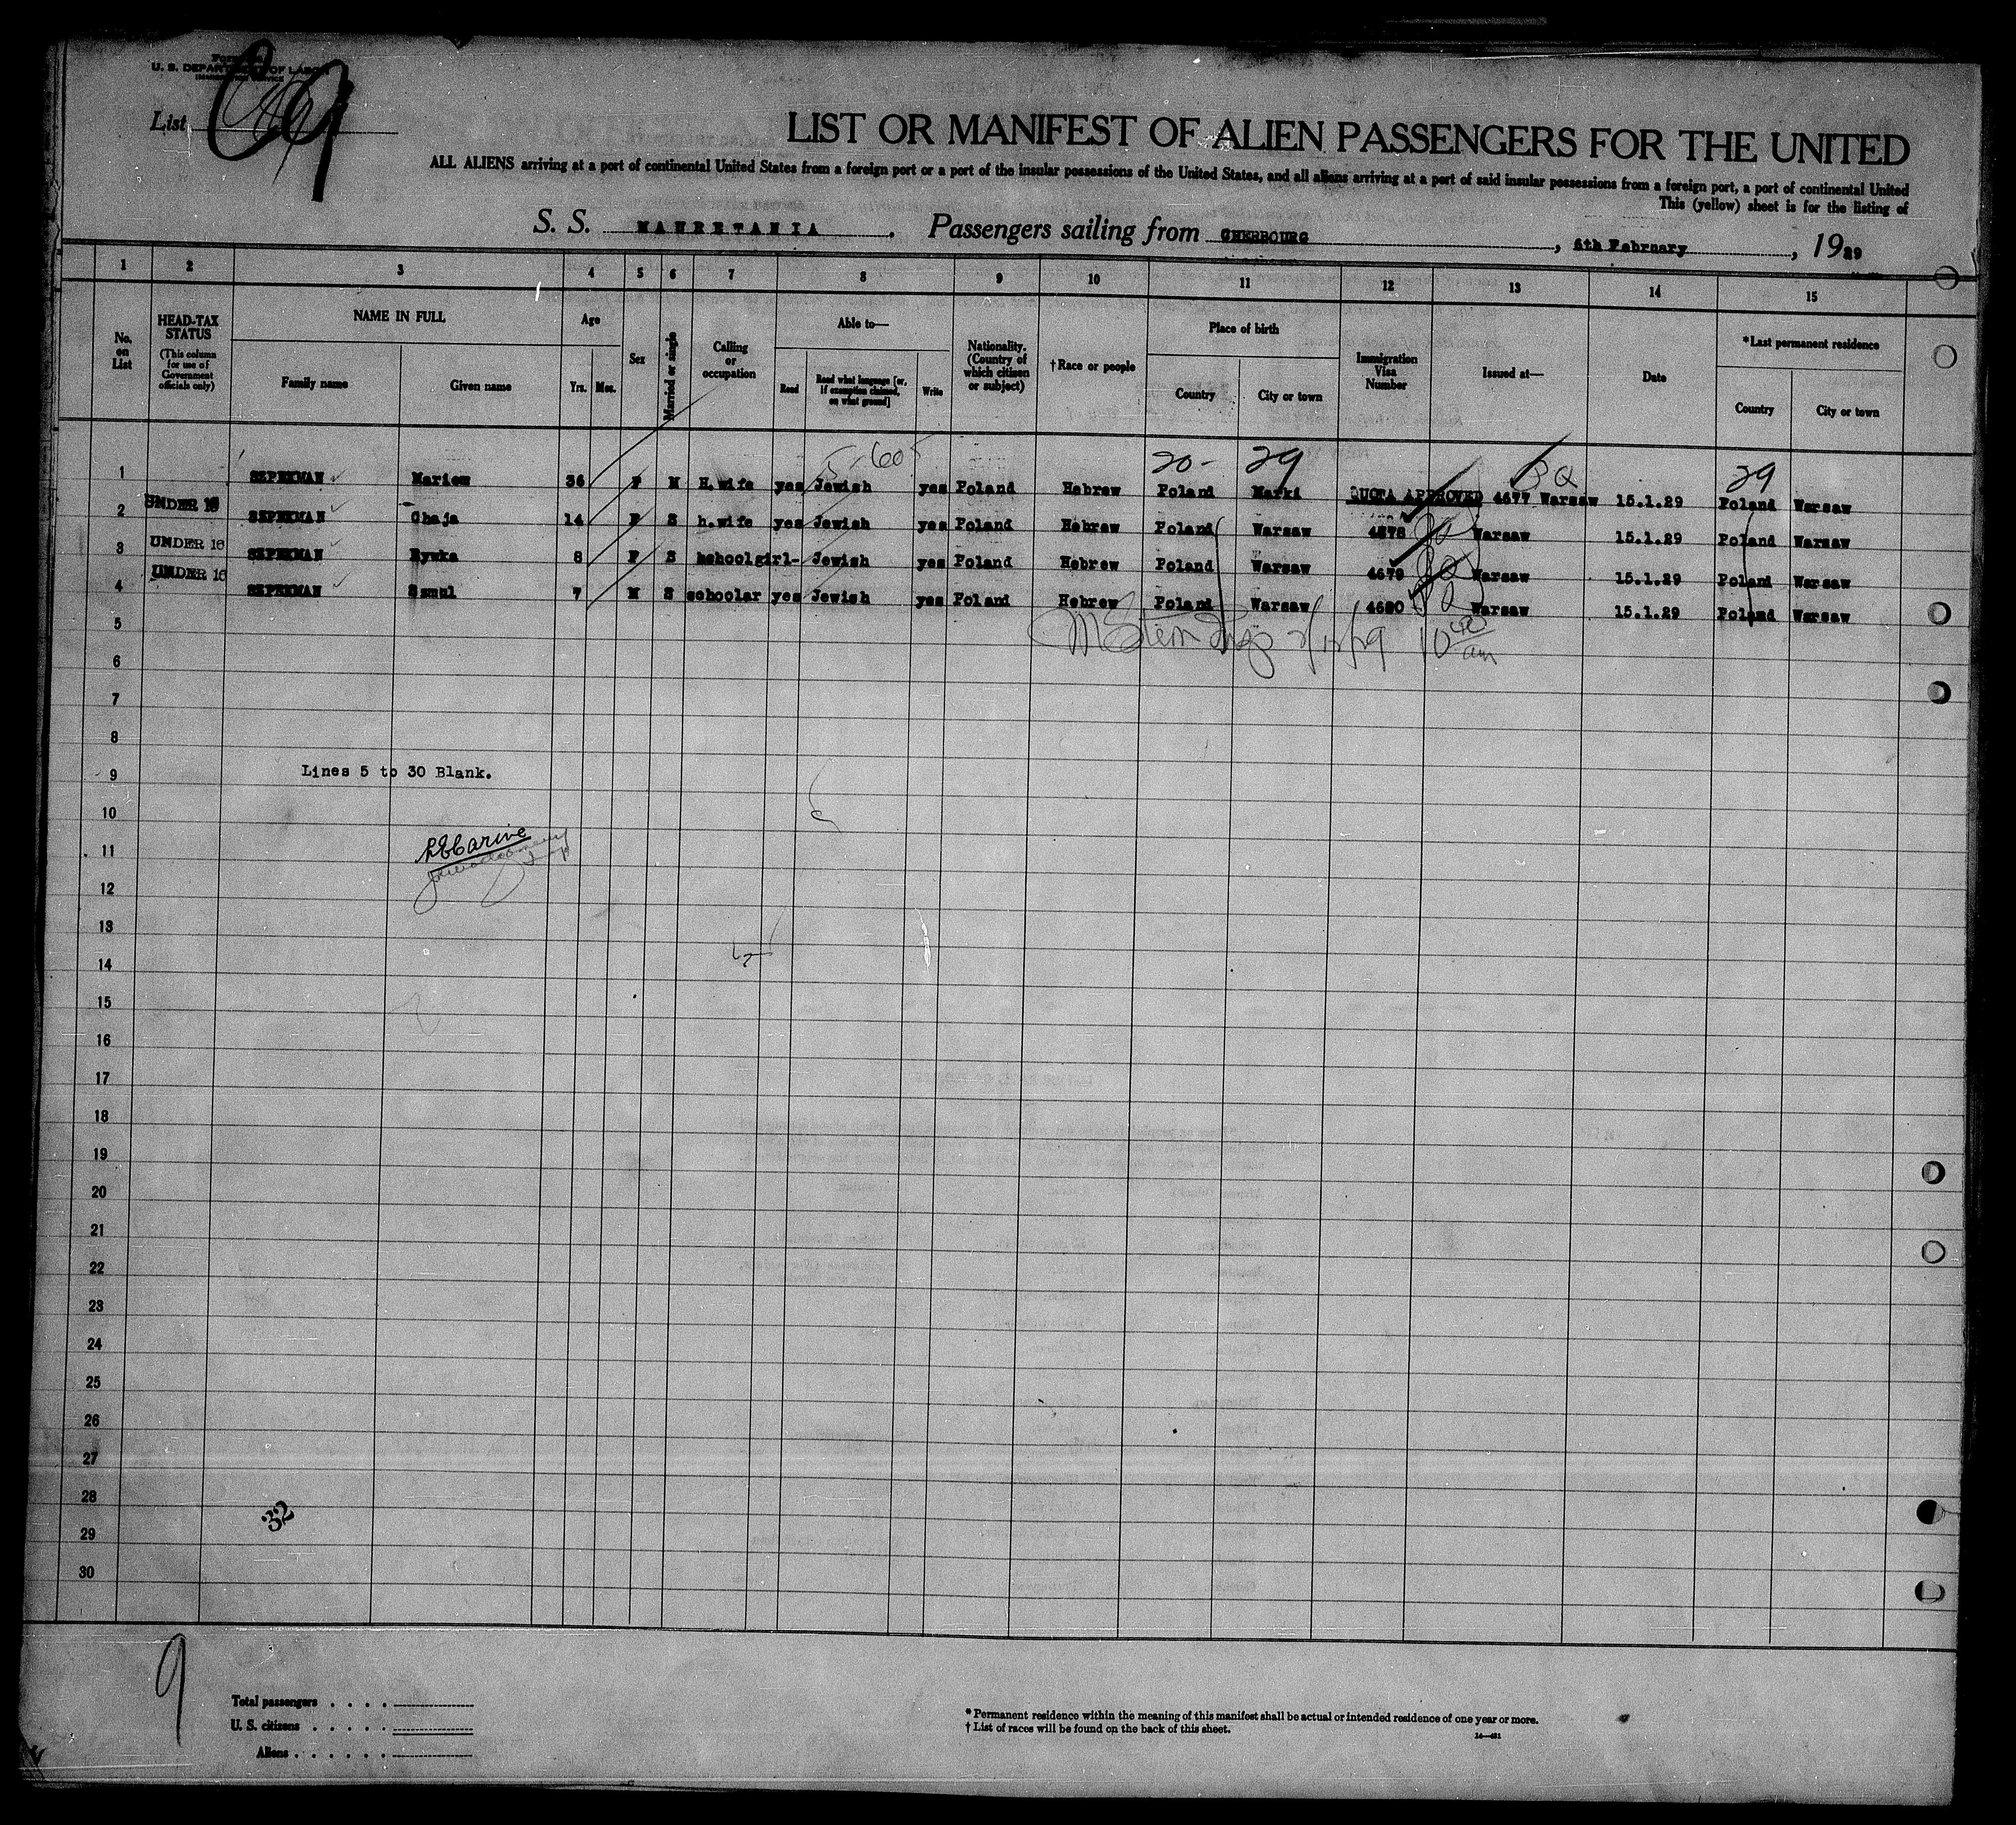 U. S. DEPARTMENT OF LABOR
List 9
LIST OR MANIFEST OF ALIEN PASSENGERS FOR THE UNITED
ALL ALIENS arriving at a port of continental United States from a foreign port or a port of the insular possessions of the United States, and all aliens arriving at a port of said insular possessions from a foreign port, a port of continental United
This (yellow) sheet is for the listing of
S. S. MAURETANIA . Passengers sailing from CHERBOURG , 6th February , 1929
1 2 3 4 5 6 7 8 9 10 11 12 13 14 15
No. on List
HEAD-TAX STATUS (This column for use of Government officials only)
NAME IN FULL
Family name
Given name
Age
Yrs. Mos.
Sex
Married or single
Calling or occupation
Able to—
Read
Read what language [or, if exemption claimed, on what ground]
Write
Nationality. (Country of which citizen or subject)
† Race or people
Place of birth
Country
City or town
Immigration Visa Number
Issued at—
Date
*Last permanent residence
Country
City or town
5-605 20- 29 BQ 29
1 Mariem 36 F M H.wife yes Jewish yes Poland Hebrew Poland Marki QUOTA APPROVED 4677 Warsaw 15.1.29 Poland Warsaw
2 UNDER 16 Chaja 14 F S h.wife yes Jewish yes Poland Hebrew Poland Warsaw 4678 Warsaw 15.1.29 Poland Warsaw
3 UNDER 16 Rywka 8 F S schoolgirl- Jewish yes Poland Hebrew Poland Warsaw 4679 Warsaw 15.1.29 Poland Warsaw
4 UNDER 16 Szmul 7 M S schoolar yes Jewish yes Poland Hebrew Poland Warsaw 4680 Warsaw 15.1.29 Poland Warsaw
5
M Stern Insp 2/12/29 10 am
6
7
8
9 Lines 5 to 30 Blank.
10
11
12
13
14
15
16
17
18
19
20
21
22
23
24
25
26
27
28
32
29
30
9
Total passengers . . . .
U. S. citizens . . . . .
Aliens . . . . . .
* Permanent residence within the meaning of this manifest shall be actual or intended residence of one year or more.
† List of races will be found on the back of this sheet.